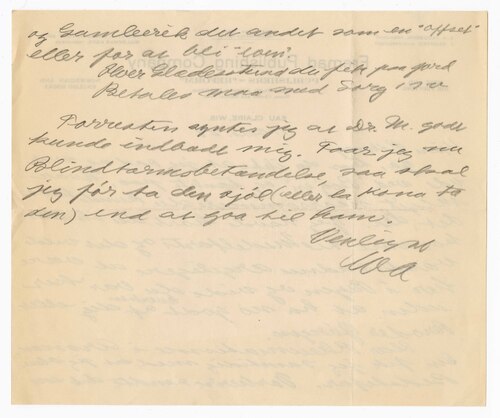 og Gambrik, det andet som en "offset"
eller for at bli "lom".
Hver Glædesstund du fik paa jord
Betales maa med Sorg i.s.v.
Forresten syntes jeg at Dr. M. godt
kunde indbudt mig. Faar jeg nu
Blindtarmsbetændelse, saa skal
jeg før ta den sjøl (eller la kona ta
den) end at gaa til ham.
Venligst
WA